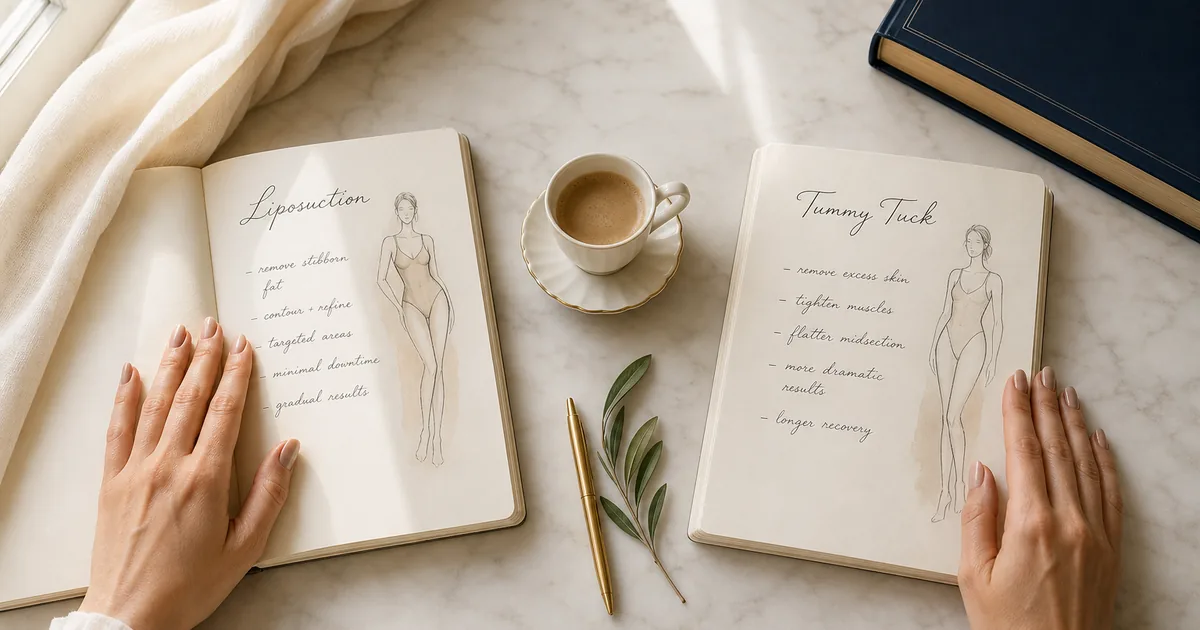 Liposuction
- remove stibborn
fat
- contour + refine
- targeted areas
- minimal downtime
- gradual results
Tummy Tuck
- remove excess skin
- tighten muscles
- flatter midsection
- more dramatic
results
- longer recovery